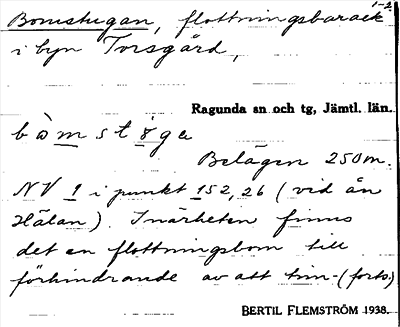 1-2.
Bomstugan, flottningsbarack
i byn Torsgård,
Ragunda sn och tg, Jämtl. län.
bòmstýga
Belägen 250 m.
NV 1 i punkt 152,26 (vid ån
Hälan). I närheten finns
det en flottningsbom till
förhindrande av att tim- (forts.)
BERTIL FLEMSTRÖM 1938.